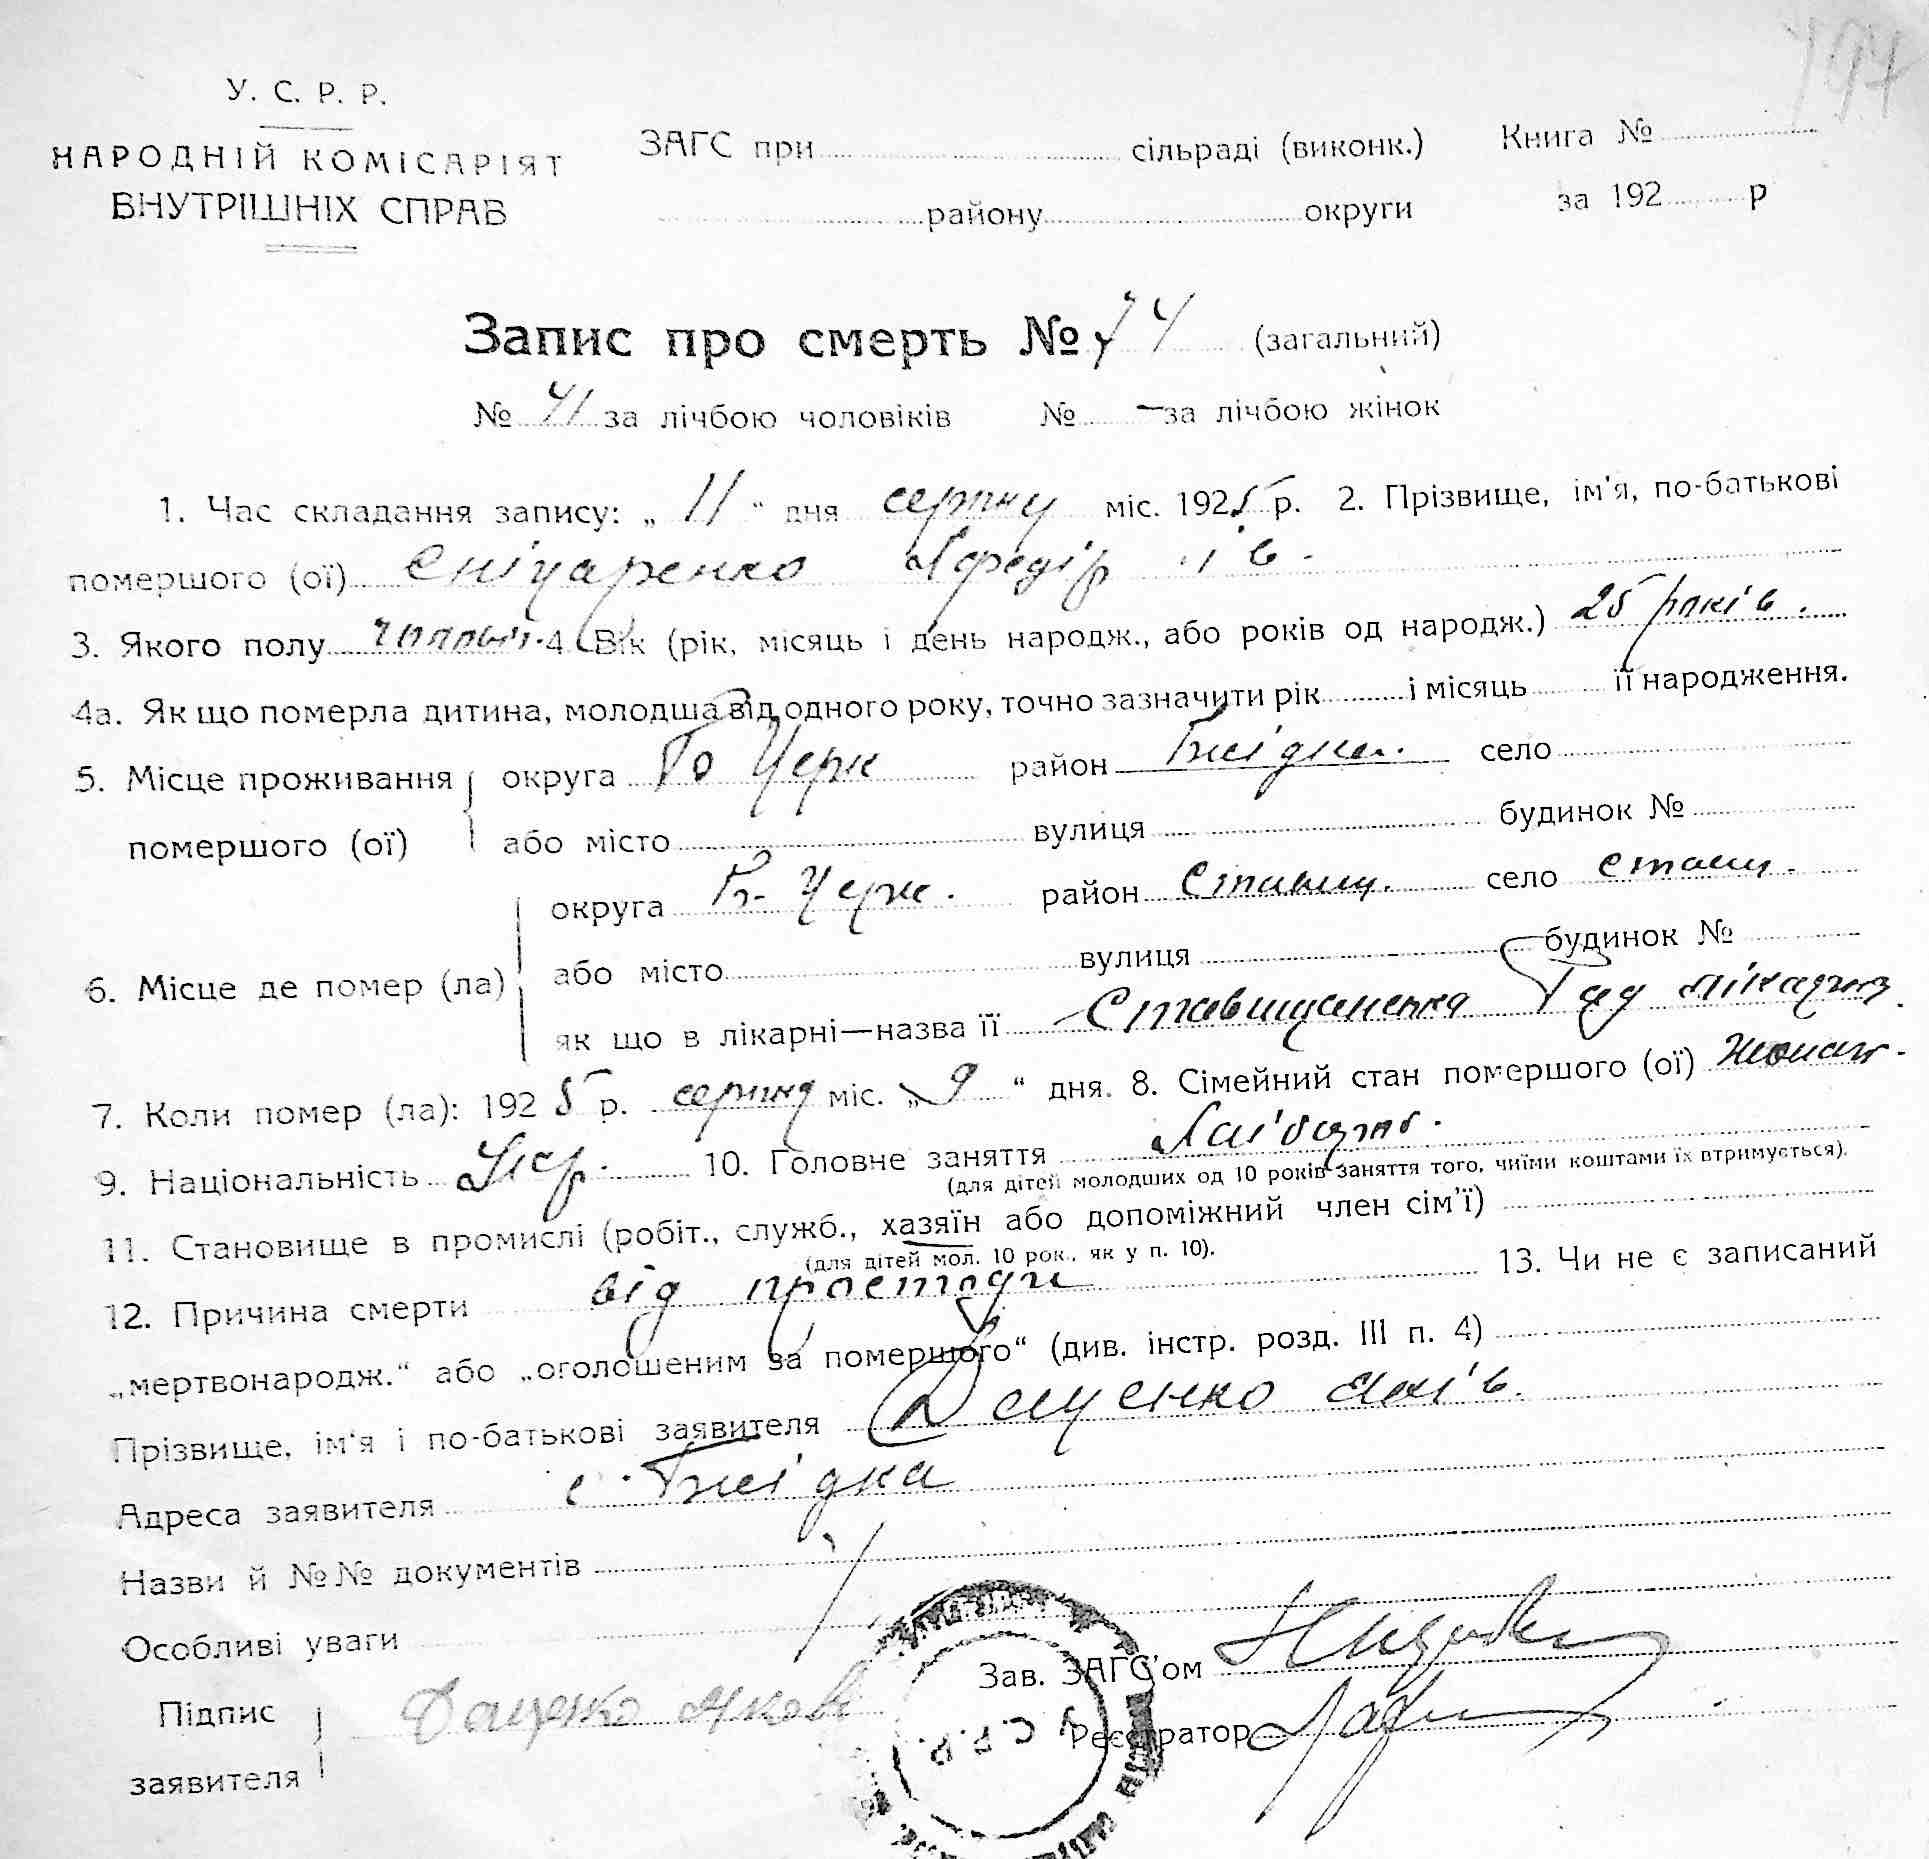 197
У. С. Р. Р.
НАРОДНІЙ КОМІСАРІЯТ
ВНУТРІШНІХ СПРАВ
ЗАГС при сільраді (виконк.) Книга №
району округи за 192 р
Запис про смерть № 74 (загальний)
№ 41 за лічбою чоловіків № — за лічбою жінок
1. Час складання запису: „ 11 “ дня серпня міс. 1925 р. 2. Прізвище, ім'я, по-батькові
помершого (ої) Сніцаренко
3. Якого полу 4. Вік (рік, місяць і день народж., або років од народж.) 25 років.
4а. Як що померла дитина, молодша від одного року, точно зазначити рік і місяць її народження.
5. Місце проживання округа Б Церк район село
помершого (ої) або місто вулиця будинок №
округа Б. Церк. район Ставищ. село Ставищ.
6. Місце де помер (ла) або місто вулиця будинок №
як що в лікарні—назва її Ставищанська Рад лікарня
7. Коли помер (ла): 1925 р. серпня міс. „ 9 “ дня. 8. Сімейний стан помершого (ої) жонат.
9. Національність Укр. 10. Головне заняття Хлібороб.
(для дітей молодших од 10 років заняття того, чиїми коштами їх втримується).
11. Становище в промислі (робіт., служб., хазяїн або допоміжний член сім'ї)
(для дітей мол. 10 рок., як у п. 10).
12. Причина смерти від простуди 13. Чи не є записаний
„мертвонародж.“ або „оголошеним за помершого“ (див. інстр. розд. III п. 4)
Прізвище, ім'я і по-батькові заявителя Даценко Яків.
Адреса заявителя с.
Назви й №№ документів
Особливі уваги
Зав. ЗАГС'ом
Підпис
заявителя Даценко Яков
Реєстратор
У. С. Р. Р.